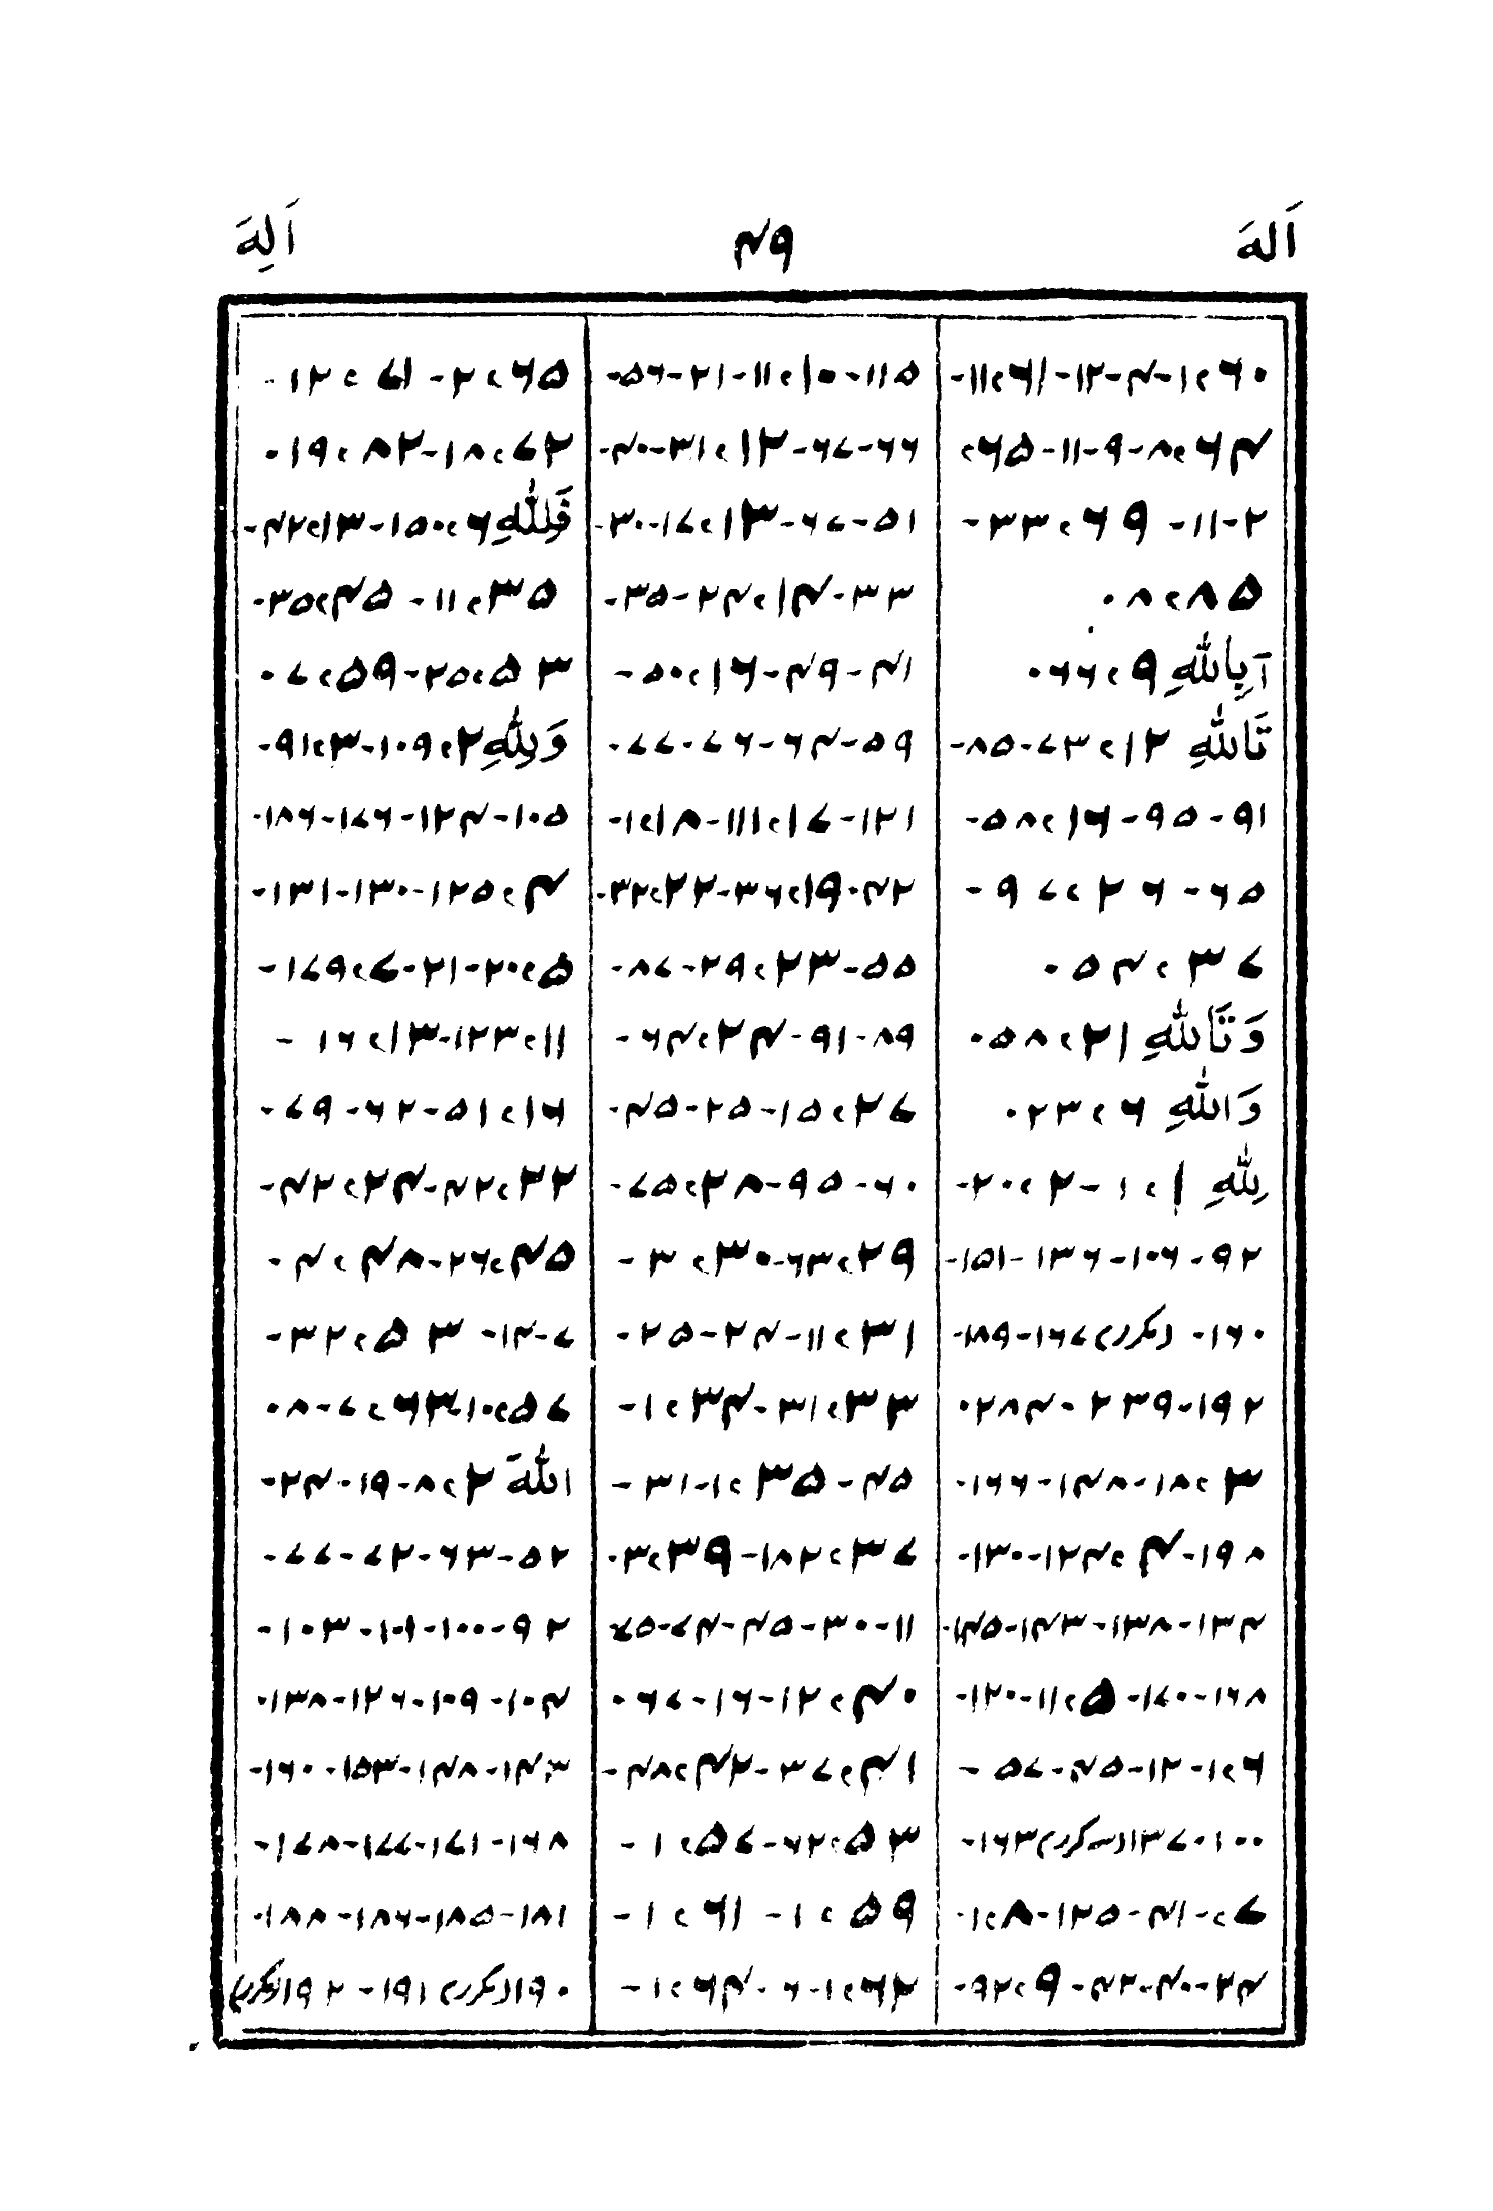 اَلهَ
۴۹
اَلِهَ
۶۰؛۱-۴-۱۲-۶۱؛۱۱-
۶۴؛۸-۹-۱۱-۶۵؛
۲-۱۱-۶۹؛۳۳-
۸۵؛۸۔
آبِاللّٰهِ ۹؛۶۶۔
تَاللّٰهِ ۱۲؛۷۳-۸۵-
۹۱-۹۵-۱۶؛۵۸-
۶۵-۲۶؛۹۷-
۳۷؛۵۴۔
وَتَاللّٰهِ ۲۱؛۵۸۔
وَاللّٰهِ ۶؛۲۳۔
لِلّٰهِ ۱؛۱-۲؛۲۰-
۹۲-۱۰۶-۱۳۶-۱۵۱-
۱۶۰-(مکرر)۱۶۷-۱۸۹-
۱۹۲-۲۳۹-۲۸۴۔
۳؛۱۸-۱۴۸-۱۶۶-
۱۹۸-۴؛۱۲۴-۱۳۰-
۱۳۴-۱۳۸-۱۴۳-۱۴۵-
۱۶۸-۱۷۰-۵؛۱۱-۱۲۰-
۶؛۱-۱۲-۴۵-۵۷-
۱۰۰-۱۳۷(سہ کرر)۱۶۳-
۷؛-۴۱-۱۲۵-۸؛۱-
۲۴-۴۰-۴۲-۹؛۹۲-
۱۱۵-۱۰؛۱۱-۲۱-۵۶-
۶۶-۶۷-۱۲؛۳۱-۴۰-
۵۱-۶۷-۱۳؛۱۷-۳۰-
۳۳-۱۴؛۲۴-۳۵-
۴۱-۴۹-۱۶؛۵۰-
۵۹-۶۴-۶۷-۷۷۔
۱۲۱-۱۷؛۱۱۱-۱۸؛۱-
۴۲-۱۹؛۳۶-۲۲؛۳۲-
۵۵-۲۳؛۲۹-۸۷-
۸۹-۹۱-۲۴؛۶۴-
۲۷؛۱۵-۲۵-۴۵-
۶۰-۹۵-۲۸؛۷۵-
۲۹؛۶۳-۳۰؛۳-
۳۱؛۱۱-۲۴-۲۵-
۳۳؛۳۱-۳۴؛۱-
۴۵-۳۵؛۱-۳۱-
۳۷؛۱۸۲-۳۹؛۳۔
۱۱-۳۰-۴۵-۴۷-۷۵
۴۰؛۱۲-۱۶-۶۷۔
۴۱؛۳۷-۴۲؛۴۸-
۵۳؛۶۲-۵۷؛۱-
۵۹؛۱-۶۱؛۱-
۶۲؛۱-۶-۶۴؛۱-
۶۵؛۲-۷۱؛۱۲-
۷۲؛۱۸-۸۲؛۱۹۔
فَلِلّٰهِ ۶؛۱۵۰-۱۳؛۴۲-
۳۵؛۱۱-۴۵؛۳۵-
۵۳؛۲۵-۵۹؛۷۔
وَلِلّٰهِ ۲؛۱۰۹-۳؛۹۱-
۱۰۵-۱۲۴-۱۷۶-۱۸۶-
۴؛۱۲۵-۱۳۰-۱۳۱-
۵؛۲۰-۲۱-۷؛۱۷۹-
۱۱؛۱۲۳-۱۳؛۱۶-
۱۶؛۵۱-۶۲-۷۹-
۲۲؛۴۲-۲۴؛۴۲-
۴۵؛۲۶-۴۸؛۴-
۷-۱۴-۵۳؛۳۲-
۵۷؛۱۰-۶۳؛۷-۸۔
اللّٰهَ ۲؛۸-۱۹-۲۴-
۵۲-۶۳-۷۲-۷۷-
۹۲-۱۰۰-۱۰۱-۱۰۳-
۱۰۴-۱۰۹-۱۲۶-۱۳۸-
۱۴۳-۱۴۸-۱۵۳-۱۶۰-
۱۶۸-۱۷۱-۱۷۷-۱۷۸-
۱۸۱-۱۸۵-۱۸۶-۱۸۸-
۱۹۰(مکرر)۱۹۱-۱۹۲(مکرر)